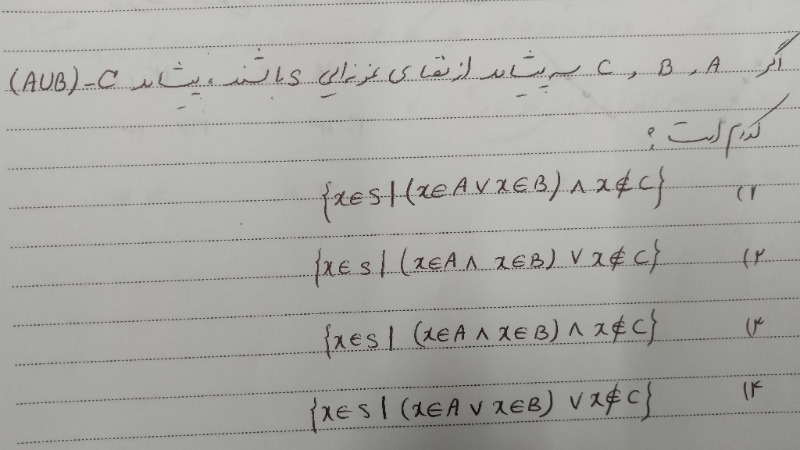 اگر A ، B ، C سه پیشامد از فضای نمونه‌ای S باشند ، پیشامد (A∪B)-C
کدام است ؟
۱) {x∈S | (x∈A ∨ x∈B) ∧ x∉C}
۲) {x∈S | (x∈A ∧ x∈B) ∨ x∉C}
۳) {x∈S | (x∈A ∧ x∈B) ∧ x∉C}
۴) {x∈S | (x∈A ∨ x∈B) ∨ x∉C}